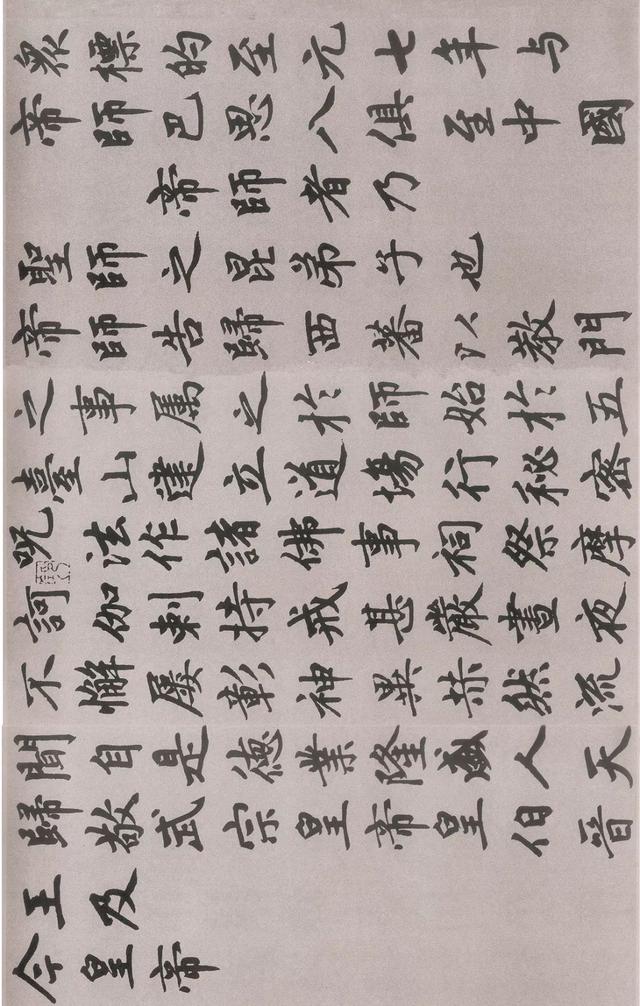 衆標的至元七年与
帝師巴思八俱至中國
帝師者乃
聖師之昆弟子也
帝師告歸西蕃以教門
之事属之於師始於五
臺山建立道場行秘密
呪法作諸佛事祠祭摩
訶伽剌持戒甚嚴晝夜
不懈屡彰神異赫然流
聞自是德業隆盛人天
歸敬武宗皇帝皇伯晉
王及
今皇帝